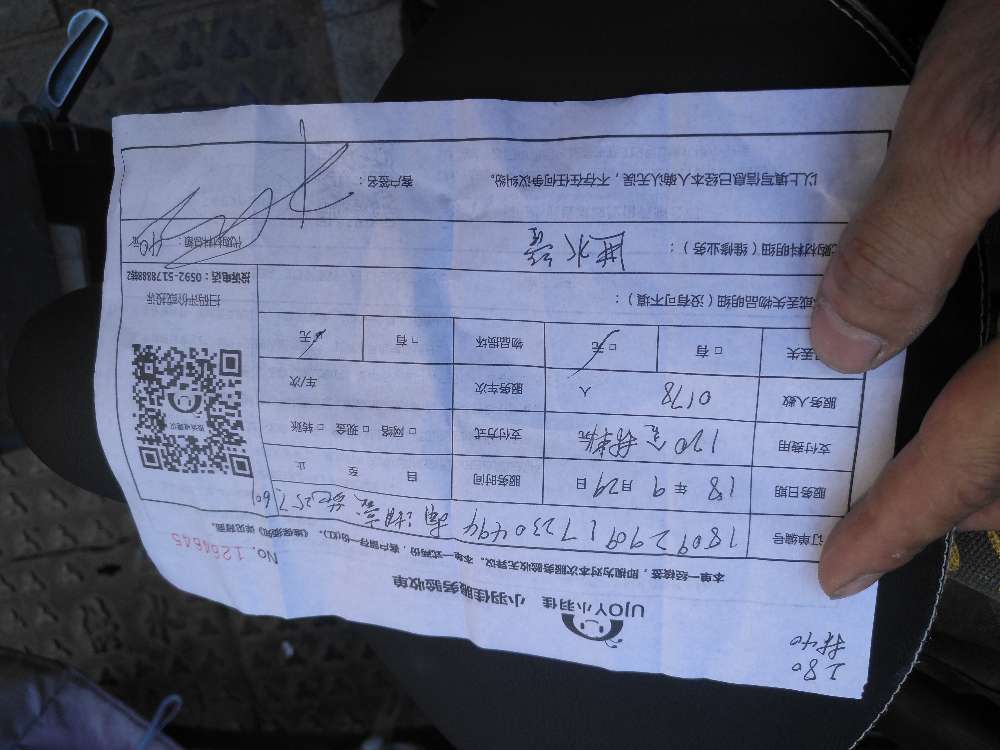 280
UJOY小羽佳 小羽佳服务验收单
本单一经核签，即视为对本次服务验收无异议。本单一式两份，客户留存一份(红)，《维保须知》详见背面。
No. 1264645
订单编号 1809290917230494
服务日期 18 年 9 月 29 日 服务时间 自 至 止
支付费用 120元 支付方式 □ 网络 □ 现金 □ 转账
服务人数 0178 人 服务车次 车/次
丢失 □ 有 □ 无 物品损坏 □ 有 □ 无
或丢失物品明细（没有可不填）：
扫码评价或投诉
投诉电话：0592-5178888转2
购材料明细（维修业务）： 进水管 代购材料总额： 40元
以上填写信息已经本人确认无误，不存在任何争议纠纷。 客户签名：